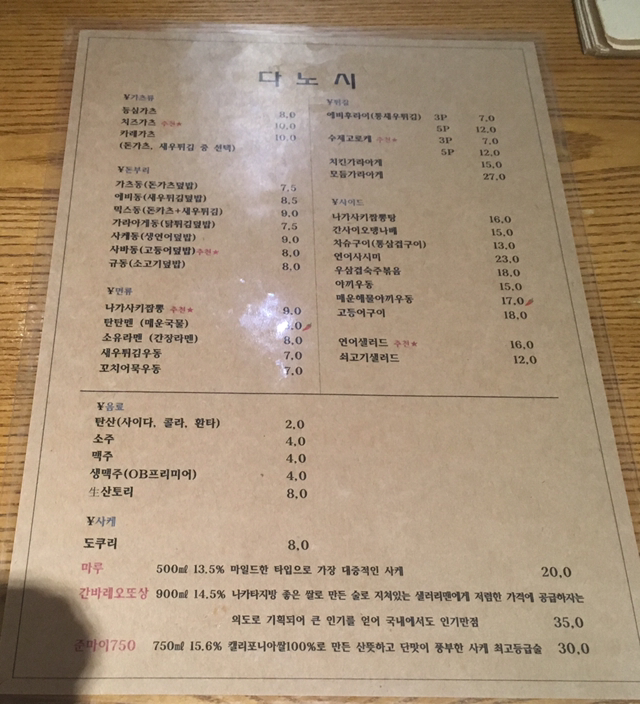 다노시
¥가츠류
등심가츠 8,0
치즈가츠 추천★ 10,0
카레가츠 10,0
(돈가츠, 새우튀김 중 선택)
¥돈부리
가츠동(돈가츠덮밥) 7,5
에비동(새우튀김덮밥) 8,5
믹스동(돈카츠+새우튀김) 9,0
가라아게동(닭튀김덮밥) 7,5
사케동(생연어덮밥) 9,0
사바동(고등어덮밥)추천★ 8,0
규동(소고기덮밥) 8,0
¥면류
나가사키짬뽕 추천★ 9,0
탄탄멘 (매운국물) ,0
소유라멘 (간장라멘) 8,0
새우튀김우동 7,0
꼬치어묵우동 7,0
¥튀김
에비후라이(통새우튀김) 3P 7,0
5P 12,0
수제고로케 추천★ 3P 7,0
5P 12,0
치킨가라아게 15,0
모듬가라아게 27,0
¥사이드
나가사키짬뽕탕 16,0
간사이오뎅나베 15,0
차슈구이(통삼겹구이) 13,0
연어사시미 23,0
우삼겹숙주볶음 18,0
야끼우동 15,0
매운해물야끼우동 17,0
고등어구이 18,0
연어샐러드 추천★ 16,0
쇠고기샐러드 12,0
¥음료
탄산(사이다, 콜라, 환타) 2,0
소주 4,0
맥주 4,0
생맥주(OB프리미어) 4,0
生산토리 8,0
¥사케
도쿠리 8,0
마루 500㎖ 13.5% 마일드한 타입으로 가장 대중적인 사케 20,0
간바레오또상 900㎖ 14.5% 나카타지방 좋은 쌀로 만든 술로 지쳐있는 샐러리맨에게 저렴한 가격에 공급하자는
의도로 기획되어 큰 인기를 얻어 국내에서도 인기만점 35,0
준마이750 750㎖ 15.6% 캘리포니아쌀100%로 만든 산뜻하고 단맛이 풍부한 사케 최고등급술 30,0